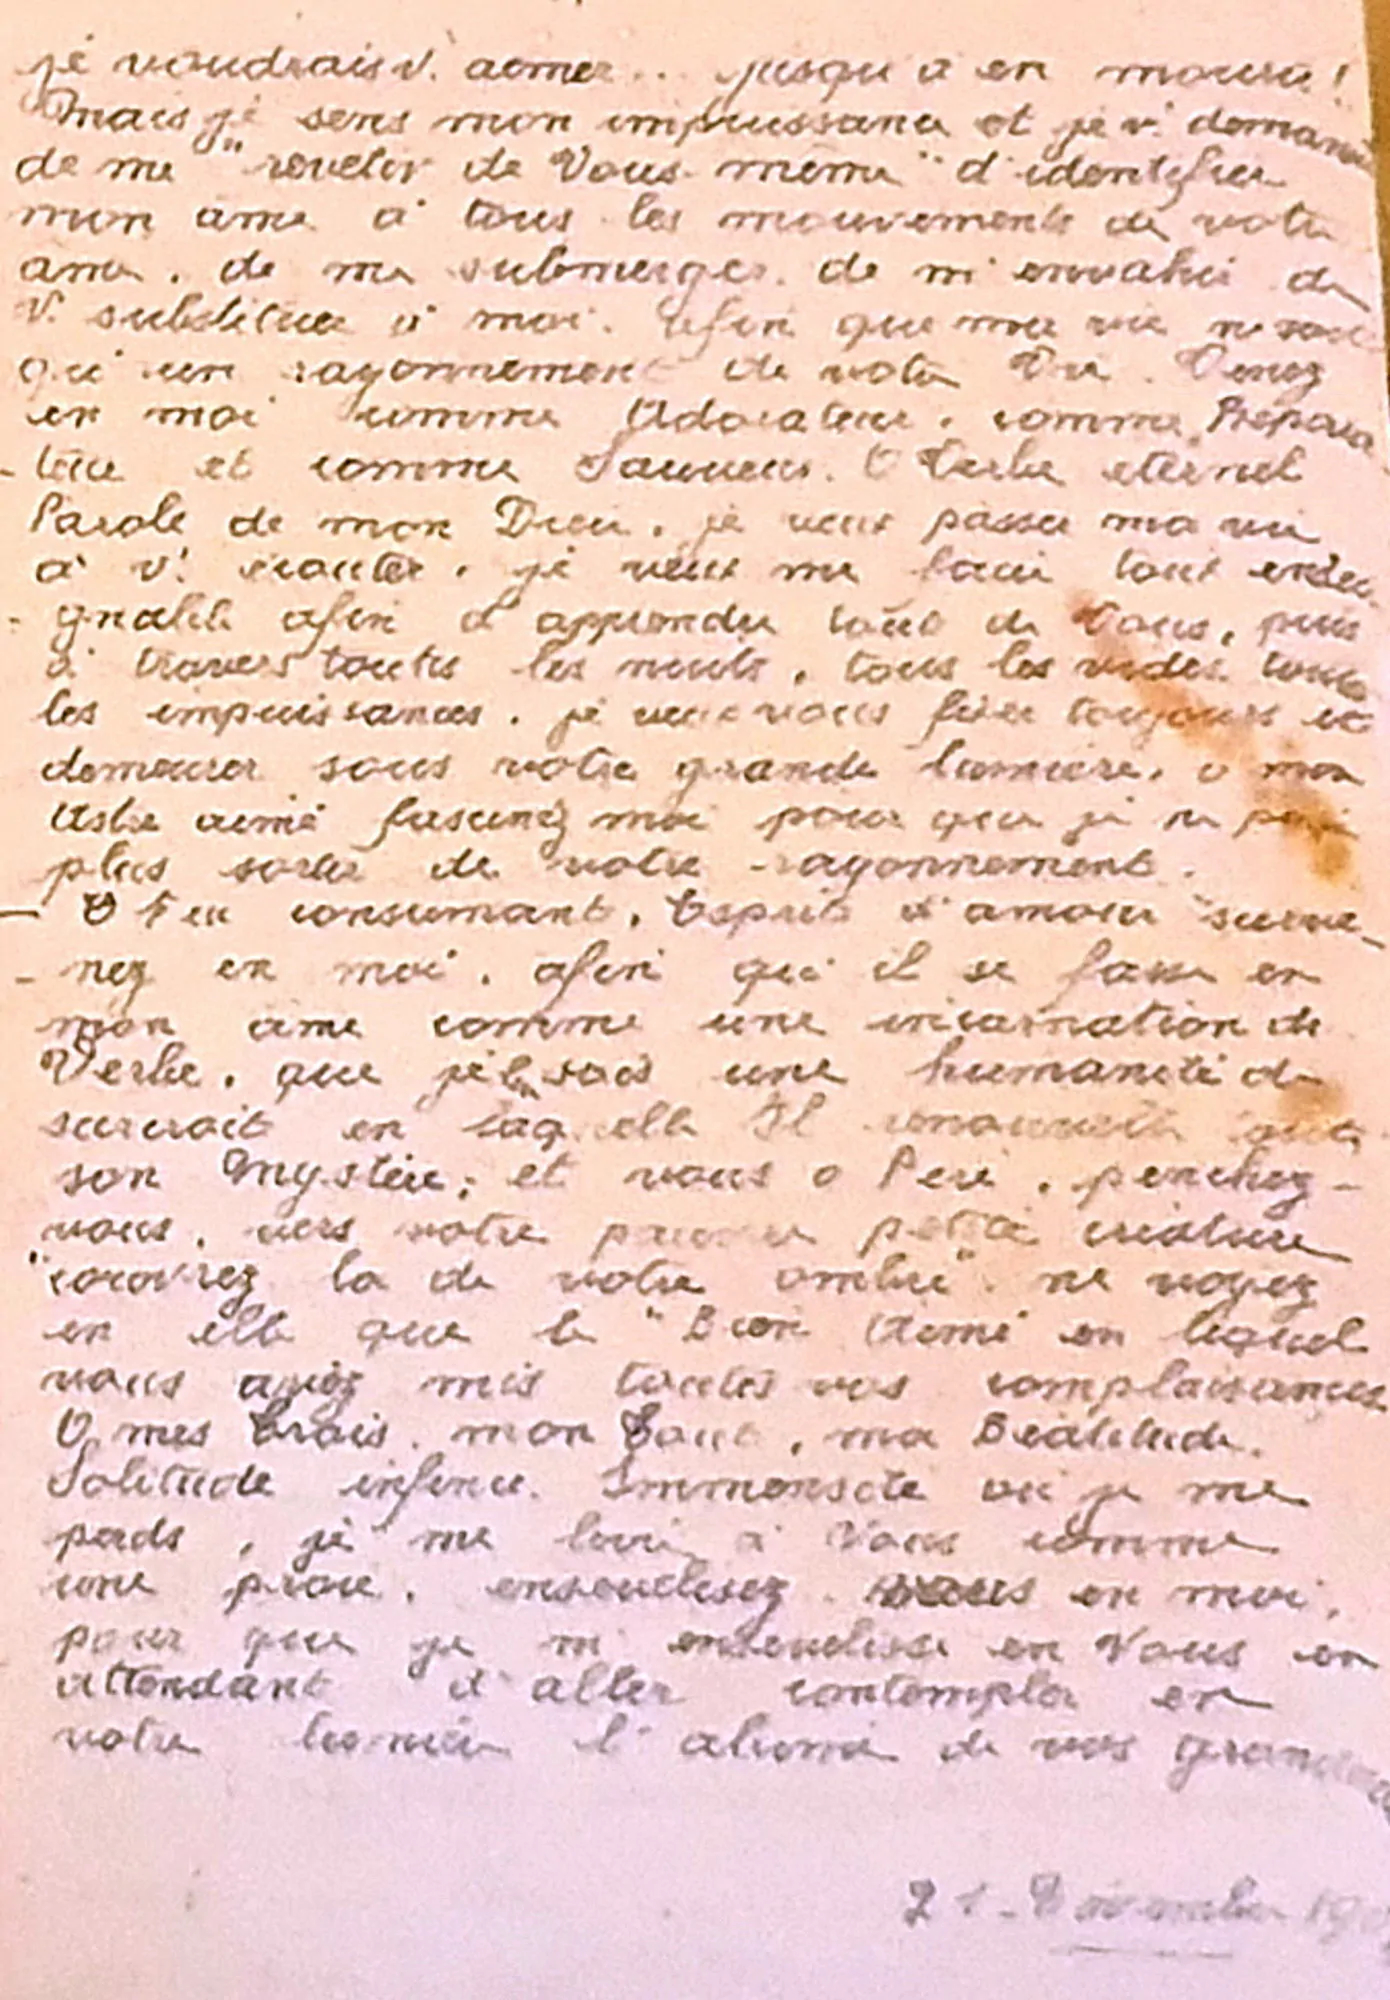 je voudrais v. aimer... jusqu'à en mourir!
Mais je sens mon impuissance et je v. demande
de me "revêtir de Vous-même" d'identifier
mon âme à tous les mouvements de votre
âme, de me submerger, de m'envahir de
V. substituer à moi. afin que ma vie ne soit
qu'un rayonnement de votre Vie. Venez
en moi comme Adorateur, comme Répara-
teur et comme Sauveur. O Verbe eternel
Parole de mon Dieu, je veux passer ma vie
à v. écouter, je veux me faire tout ensei-
gnable afin d'apprendre tout de Vous, puis
à travers toutes les nuits, tous les vides, toutes
les impuissances, je veux vous fixer toujours et
demeurer sous votre grande lumière, o mon
Astre aimé fascinez moi pour que je ne puisse
plus sortir de votre rayonnement.
- O Feu consumant, Esprit d'amour "surve-
nez en moi, afin qu'il se fasse en
mon âme comme une incarnation du
Verbe, que je sois une humanité de
surcroit en laquelle Il renouvelle tout
son Mystère; et vous o Père, penchez-
vous, vers votre pauvre petite créature
"couvrez la de votre ombre" ne voyez
en elle que le "Bien Aimé en lequel
vous avez mis toutes vos complaisances
O mes Trois, mon Tout, ma Béatitude,
Solitude infinie. Immensité où je me
perds, je me livre à Vous comme
une proie, ensevelissez vous en moi,
pour que je m'ensevelisse en Vous en
attendant d'aller contempler en
votre lumière l'abime de vos grandeurs
21 - Novembre